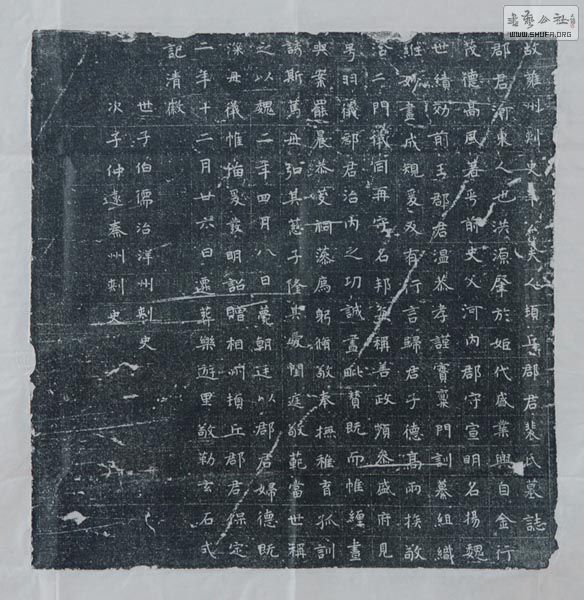 故雍州刺史辛公夫人頓丘郡君裴氏墓誌
郡君河東人也洪源肇於姬代盛業興自金行
茂德高風著乎前史父河內郡守宣明名揚魏
世績効前主郡君溫恭孝謹實稟門訓綦組織
維妙盡成規爰及有行言歸君子德高兩族敬
洽二門儀同再守名邦稱善政頻參盛府見
号羽儀郡君治內之功誠盡毗贊既而惟纏晝
哭案罷晨恭蒸祠藻薦躬脩敬奉撫稚育孤訓
誘斯篤毋弘其慈子隆其愛閨庭敬範當世稱
之以魏二年四月八日薨朝廷以郡君婦德既
深毋儀惟揗爰發明詔贈相州頓丘郡君保定
二年十二月廿六日遷葬樂遊里敬勒玄石式
記清徽
世子伯儒治洋州刺史
次子仲遠秦州刺史
書藝公社
WWW.SHUFA.ORG